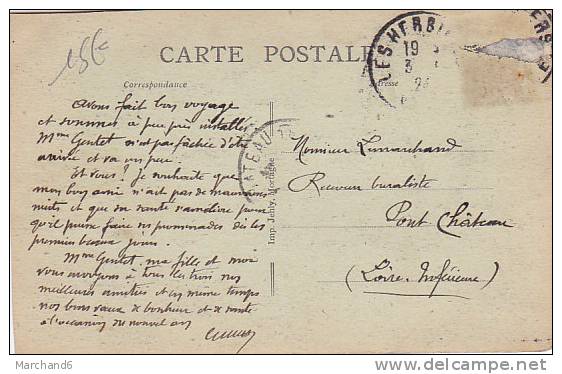 15€
CARTE POSTALE
LES HERBI
19
3
Correspondance
Adresse
Avons fait bon voyage
et sommes à peu près installés
Mme Gentet n'est pas fâchée d'être
arrivée et va un peu.
Et vous? Je souhaite que
mon bon ami n'ait pas de mauvaises
nuits et que sa santé s'améliore pour
qu'il puisse faire ses promenades dès les
premiers beaux jours.
Mme Gentet, ma fille et moi
vous envoyons à tous les trois nos
meilleures amitiés et en même temps
nos bons vœux de bonheur et de santé
à l'occasion du nouvel an
Monsieur Lumarchand
Receveur buraliste
Pont Château
(Loire-Inférieure)
Imp. Jehly, Mortagne
Marchand6
delcampe.net